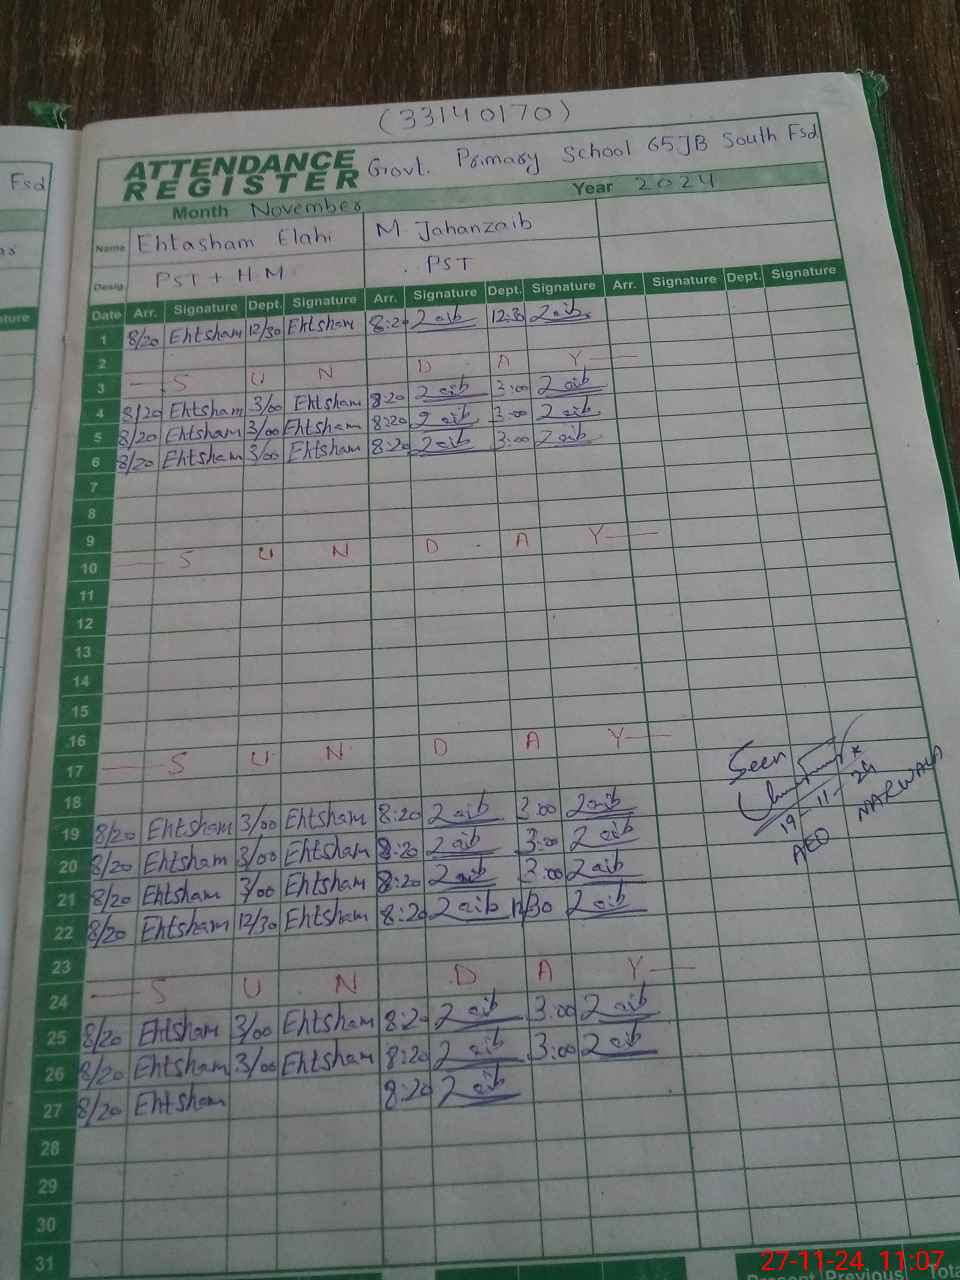 (33140170)
ATTENDANCE REGISTER Govt. Primary School 65JB South Fsd
Fsd
Month November Year 2024
Name Ehtasham Elahi M. Jahanzaib
Desig. PST + H.M PST
Date Arr. Signature Dept. Signature Arr. Signature Dept. Signature Arr. Signature Dept. Signature
1 8/20 Ehtsham 12/30 Ehtsham 8:20 Zaib 12:30 Zaib
2
3 S U N D A Y
4 8/20 Ehtsham 3/00 Ehtsham 8:20 Zaib 3:00 Zaib
5 8/20 Ehtsham 3/00 Ehtsham 8:20 Zaib 3:00 Zaib
6 8/20 Ehtsham 3/00 Ehtsham 8:20 Zaib 3:00 Zaib
7
8
9
10 S U N D A Y
11
12
13
14
15
16
17 S U N D A Y
18
19 8/20 Ehtsham 3/00 Ehtsham 8:20 Zaib 3:00 Zaib
20 8/20 Ehtsham 3/00 Ehtsham 8:20 Zaib 3:00 Zaib
21 8/20 Ehtsham 3/00 Ehtsham 8:20 Zaib 3:00 Zaib
22 8/20 Ehtsham 12/30 Ehtsham 8:20 Zaib 12/30 Zaib
23
24 S U N D A Y
25 8/20 Ehtsham 3/00 Ehtsham 8:20 Zaib 3:00 Zaib
26 8/20 Ehtsham 3/00 Ehtsham 8:20 Zaib 3:00 Zaib
27 8/20 Ehtsham 8:20 Zaib
28
29
30
31
Seen
19-11-24
AEO NARWALA
Present Previous Total
27-11-24 11:07